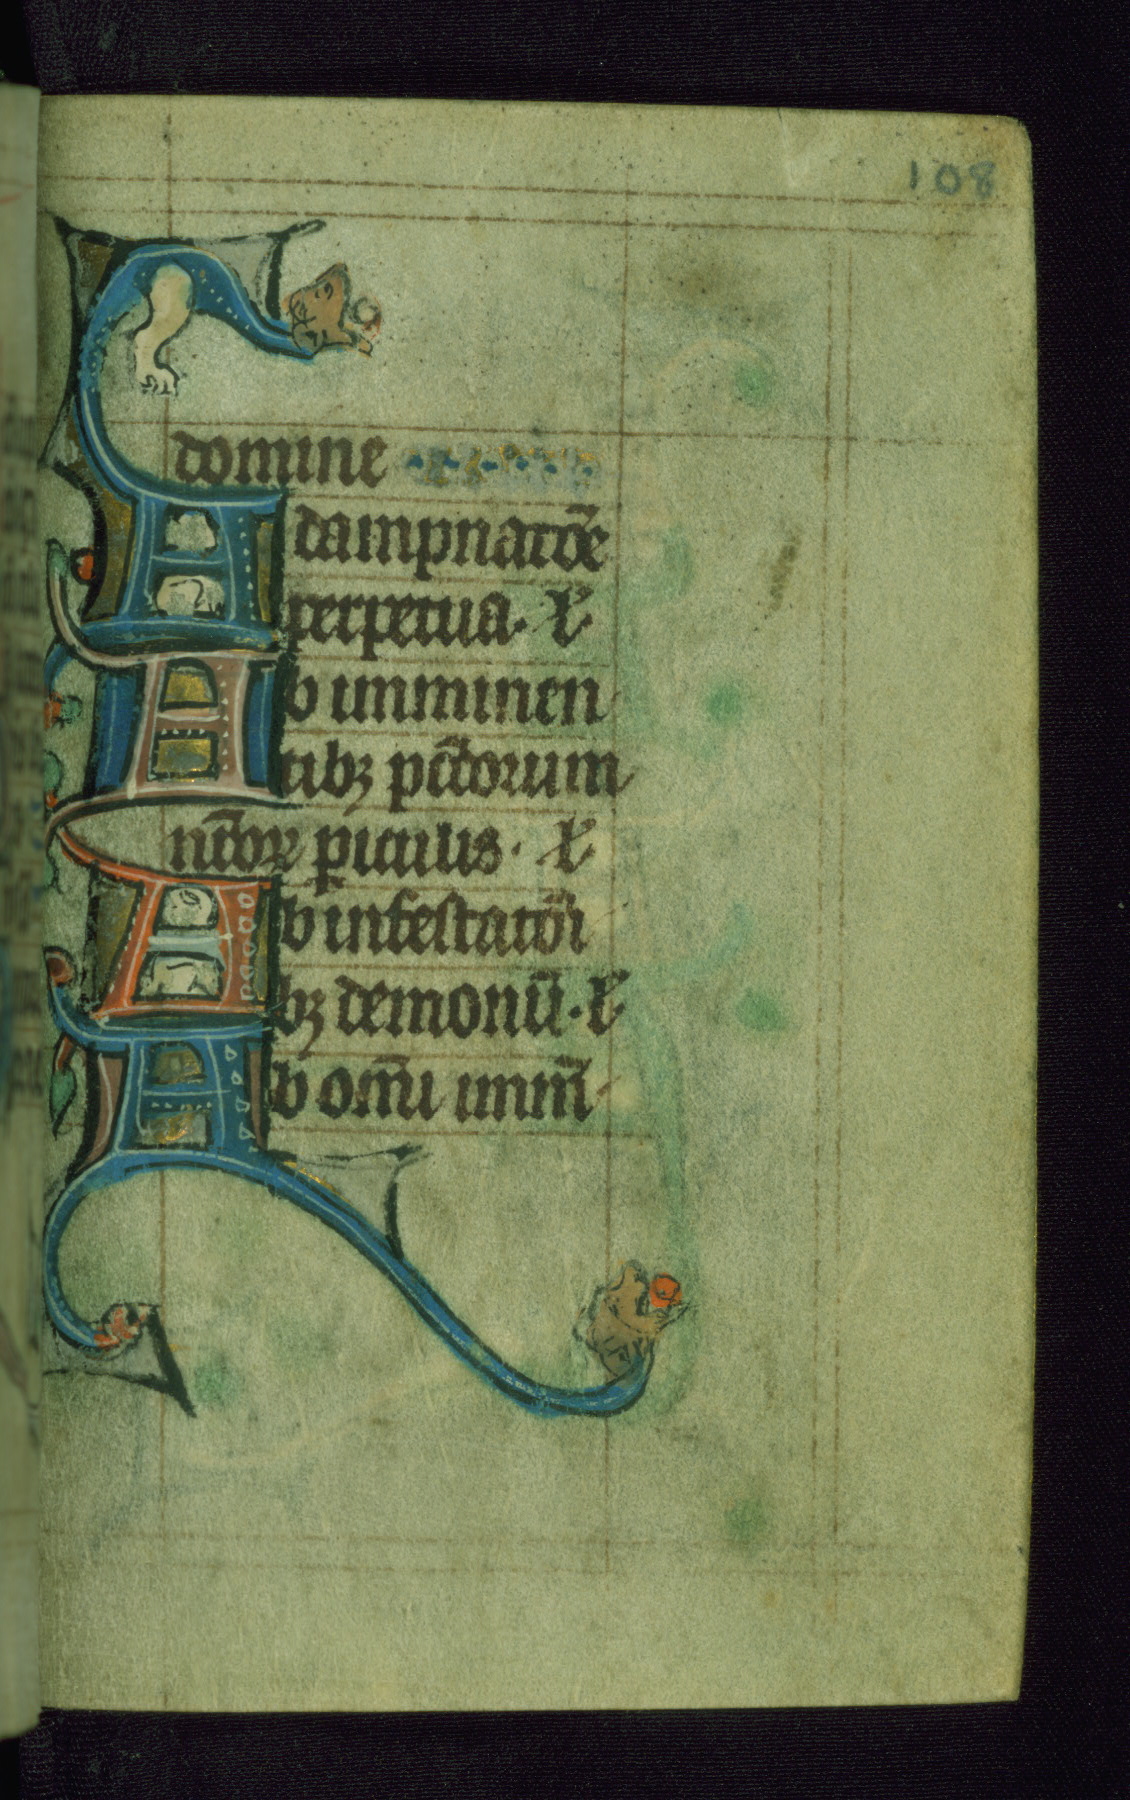 108
domine
A dampnatōe
perpetua. l'
A b imminen
tibꝫ pctōrum
nr̄oꝝ piculis. l'
A b infestatōi
bꝫ demonū. l'
A b omī imm̄